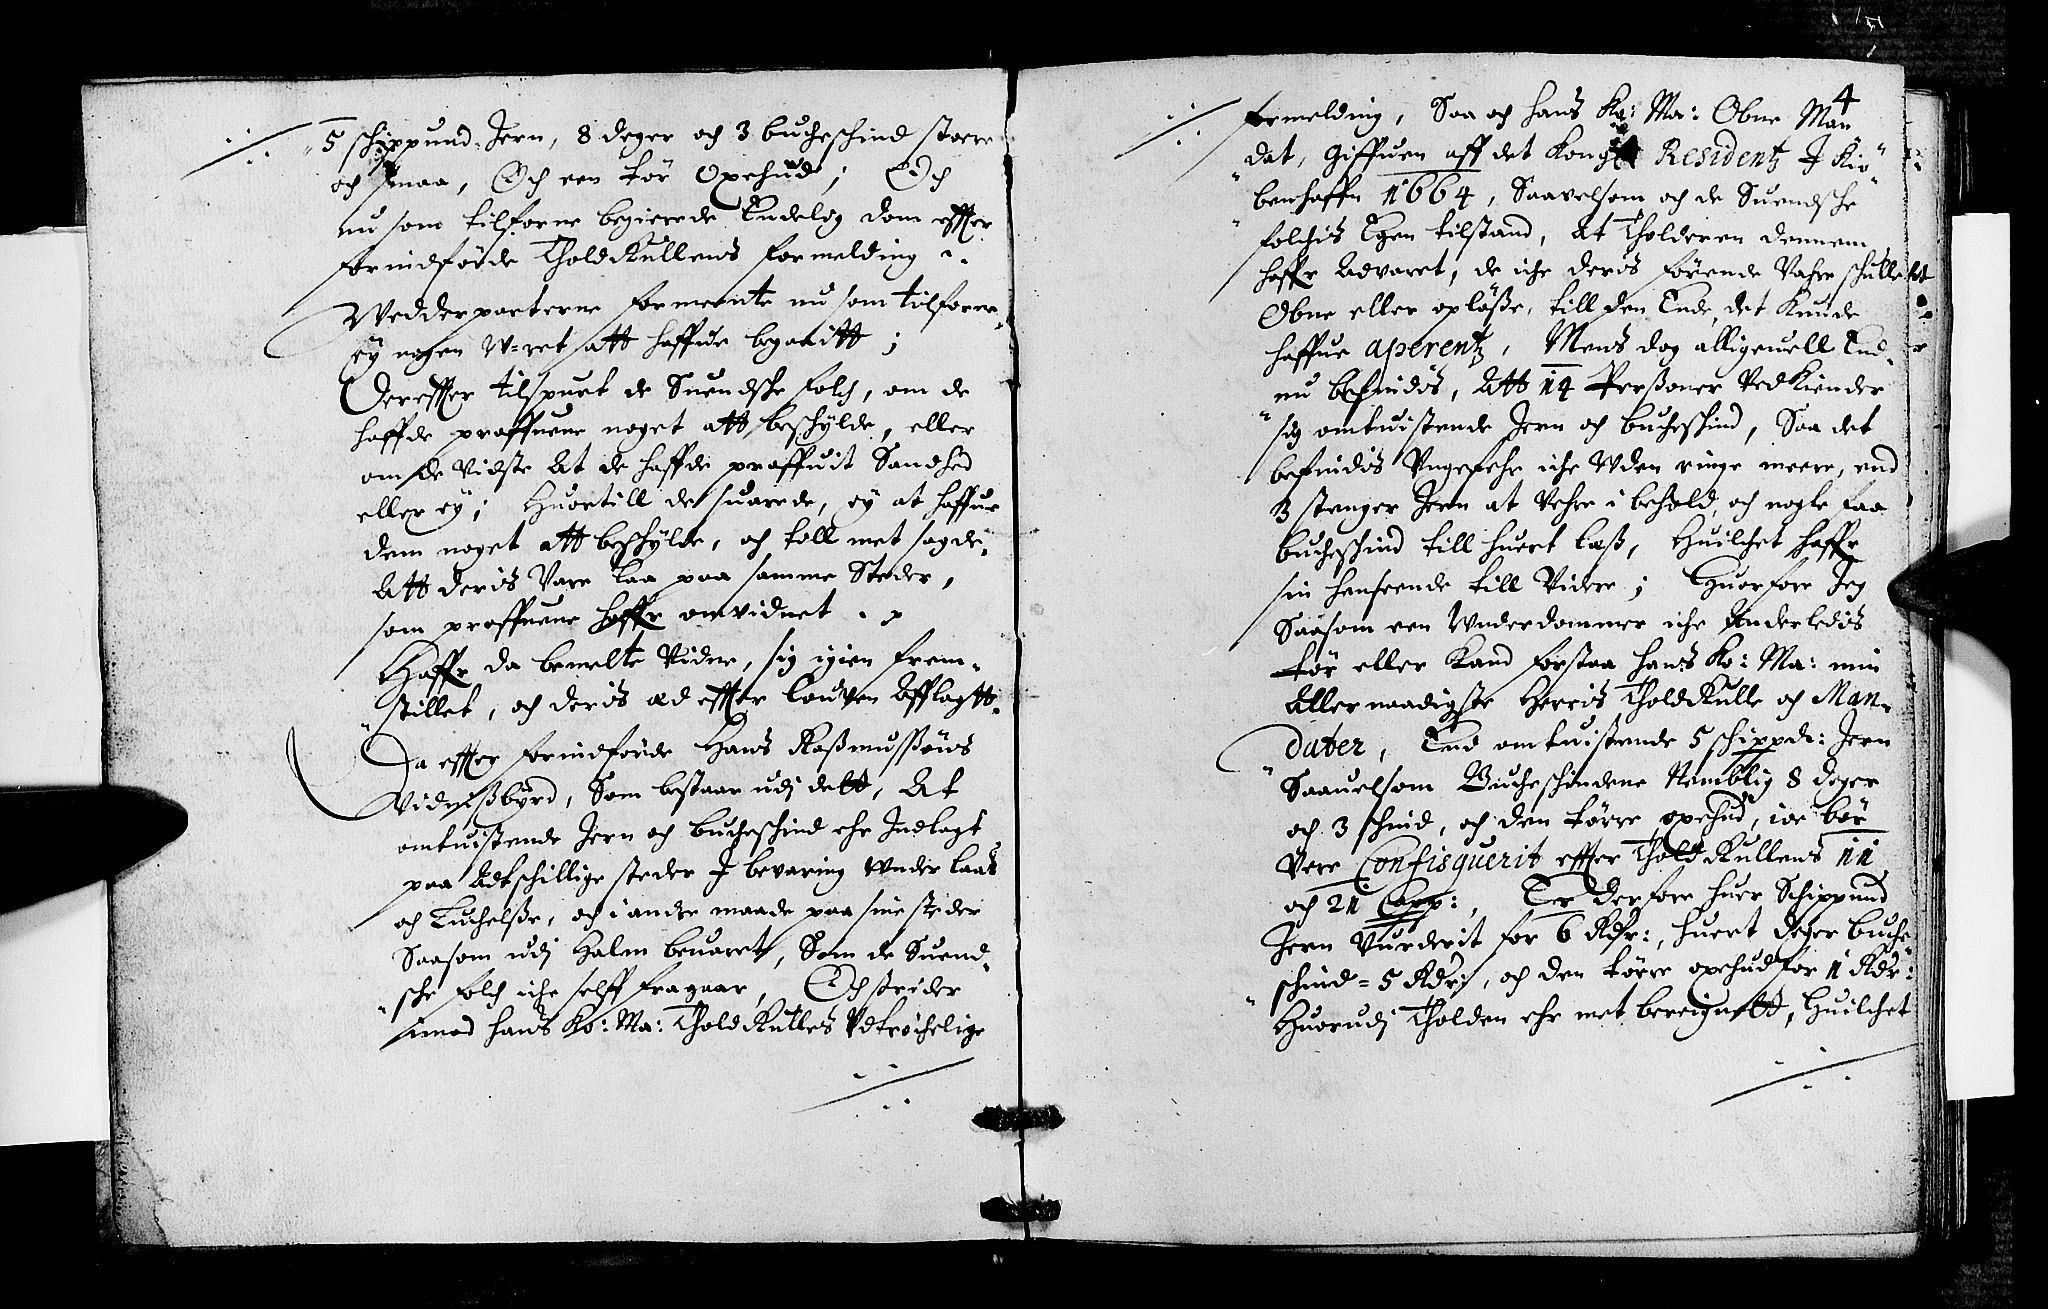 5 schippund Jern, 8 deger och 3 bucheschind stoere
och smaa, Och een tör Oxehud; Och
nu som tilforne begierede Endelig dom effter
forindförde Thold Rullens formelding
Wedderparterne formeente nu som tilforne,
ey nogen W-ret att haffue begaaitt;
Dereffter tilspurt de Suendsche folch, om de
haffde proffuene noget att beschylde, eller
om de vidste At de haffde proffuit Sandhed
eller ey; Huortill de suarede, ey at haffue
dem noget att beschylde, och toll met sagde,
Att deris Vare laa paa samme Steder,
som proffuene haffr omvidnet
Haffr da bemelte Vidne, sig igien frem-
stillet, och deris æd effter louven Afflagtt.
Da effter forindförde Hans Rasmussöns
Vidnißbyrd, Som bestaar udj dett, At
omtuistende Jern och bucheschind ehr Indlagt
paa Adtschillige steder J bevaring Under laas
och Luchelße, och i andre maade paa sine steder
Saasom udj Halm beuaret, Som de Suend-
sche folch iche self fragaar, Och strider
imod hans Ko: Ma: Thold Rulles Udtröchelige
4
formelding, Saa och hans Ko: Ma: Obne Man
dat, Giffuen aff det Kongl Residentz J Kiö-
benhaffn 1664, Saavelsom och de Suendsche
folchis Egen tilstand, At Tholderen dennem
haffr Advaret, de iche deris förende Vahre schulle
Obne eller oplösse, till den Ende, det Kunde
haffue aperentz, Mens dog alligeuell End-
nu befindis, Att 14 Personer Vedkiender
sig omtuistende Jern och bucheschind, Saa det
befindis Ungefehr iche Uden ringe meere, end
3 stenger Jern at Vehre i behold, och nogle faa
bucheschind till huert læß, Huilchet haffr
sin henseende till Videre; Huorfore Jeg
Saasom een Underdommer iche Anderledis
tör eller Kand forstaa hans Ko: Ma: min
Allernaadigste Herris Thold Rulle och Man-
dater, End omtuistende 5 schippd: Jern
Saauelsom Bucheschindene Nemblig 8 deger
och 3 schind, och den törre oxehud, ioe bör
Vere Confisquerit effter Thold Rullens 11
och 21 Capp:, Er derfore huer Schippund
Jern Vurderit for 6 Rdr:, huert deger buche
schind = 5 Rdr:, och den törre oxehud for 1 Rdr:
Huorudj Tholden ehr met bereignett, Huilchet